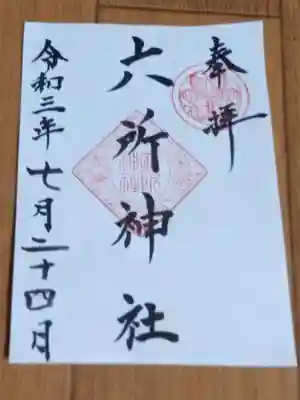 奉拝
六所神社
令和三年七月二十四月